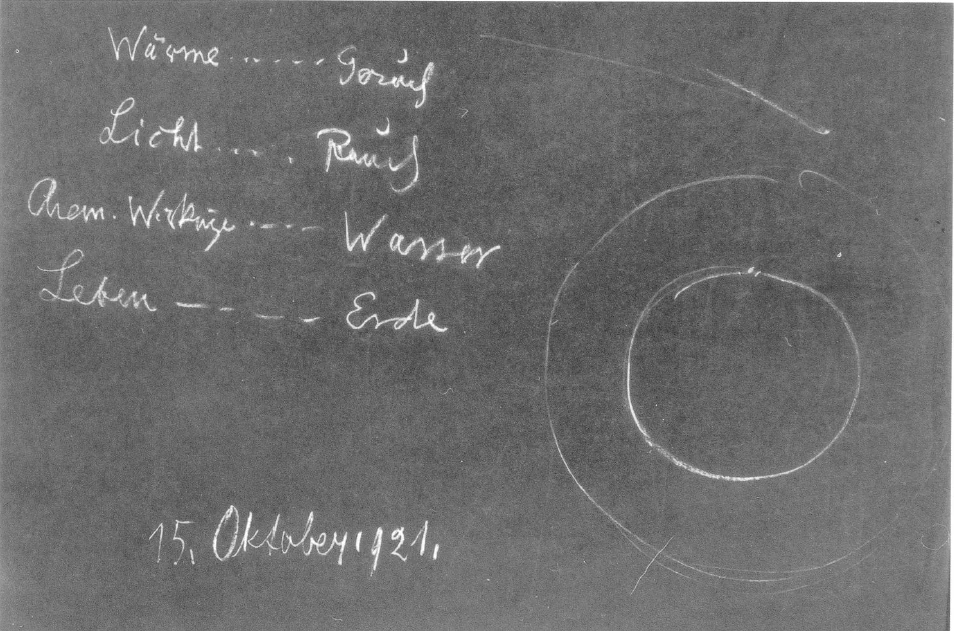 Wärme ..... Geruch
Licht ..... Rauch
Chem. Wirkunge ---- Wasser
Leben ---- Erde
15. Oktober 1921.